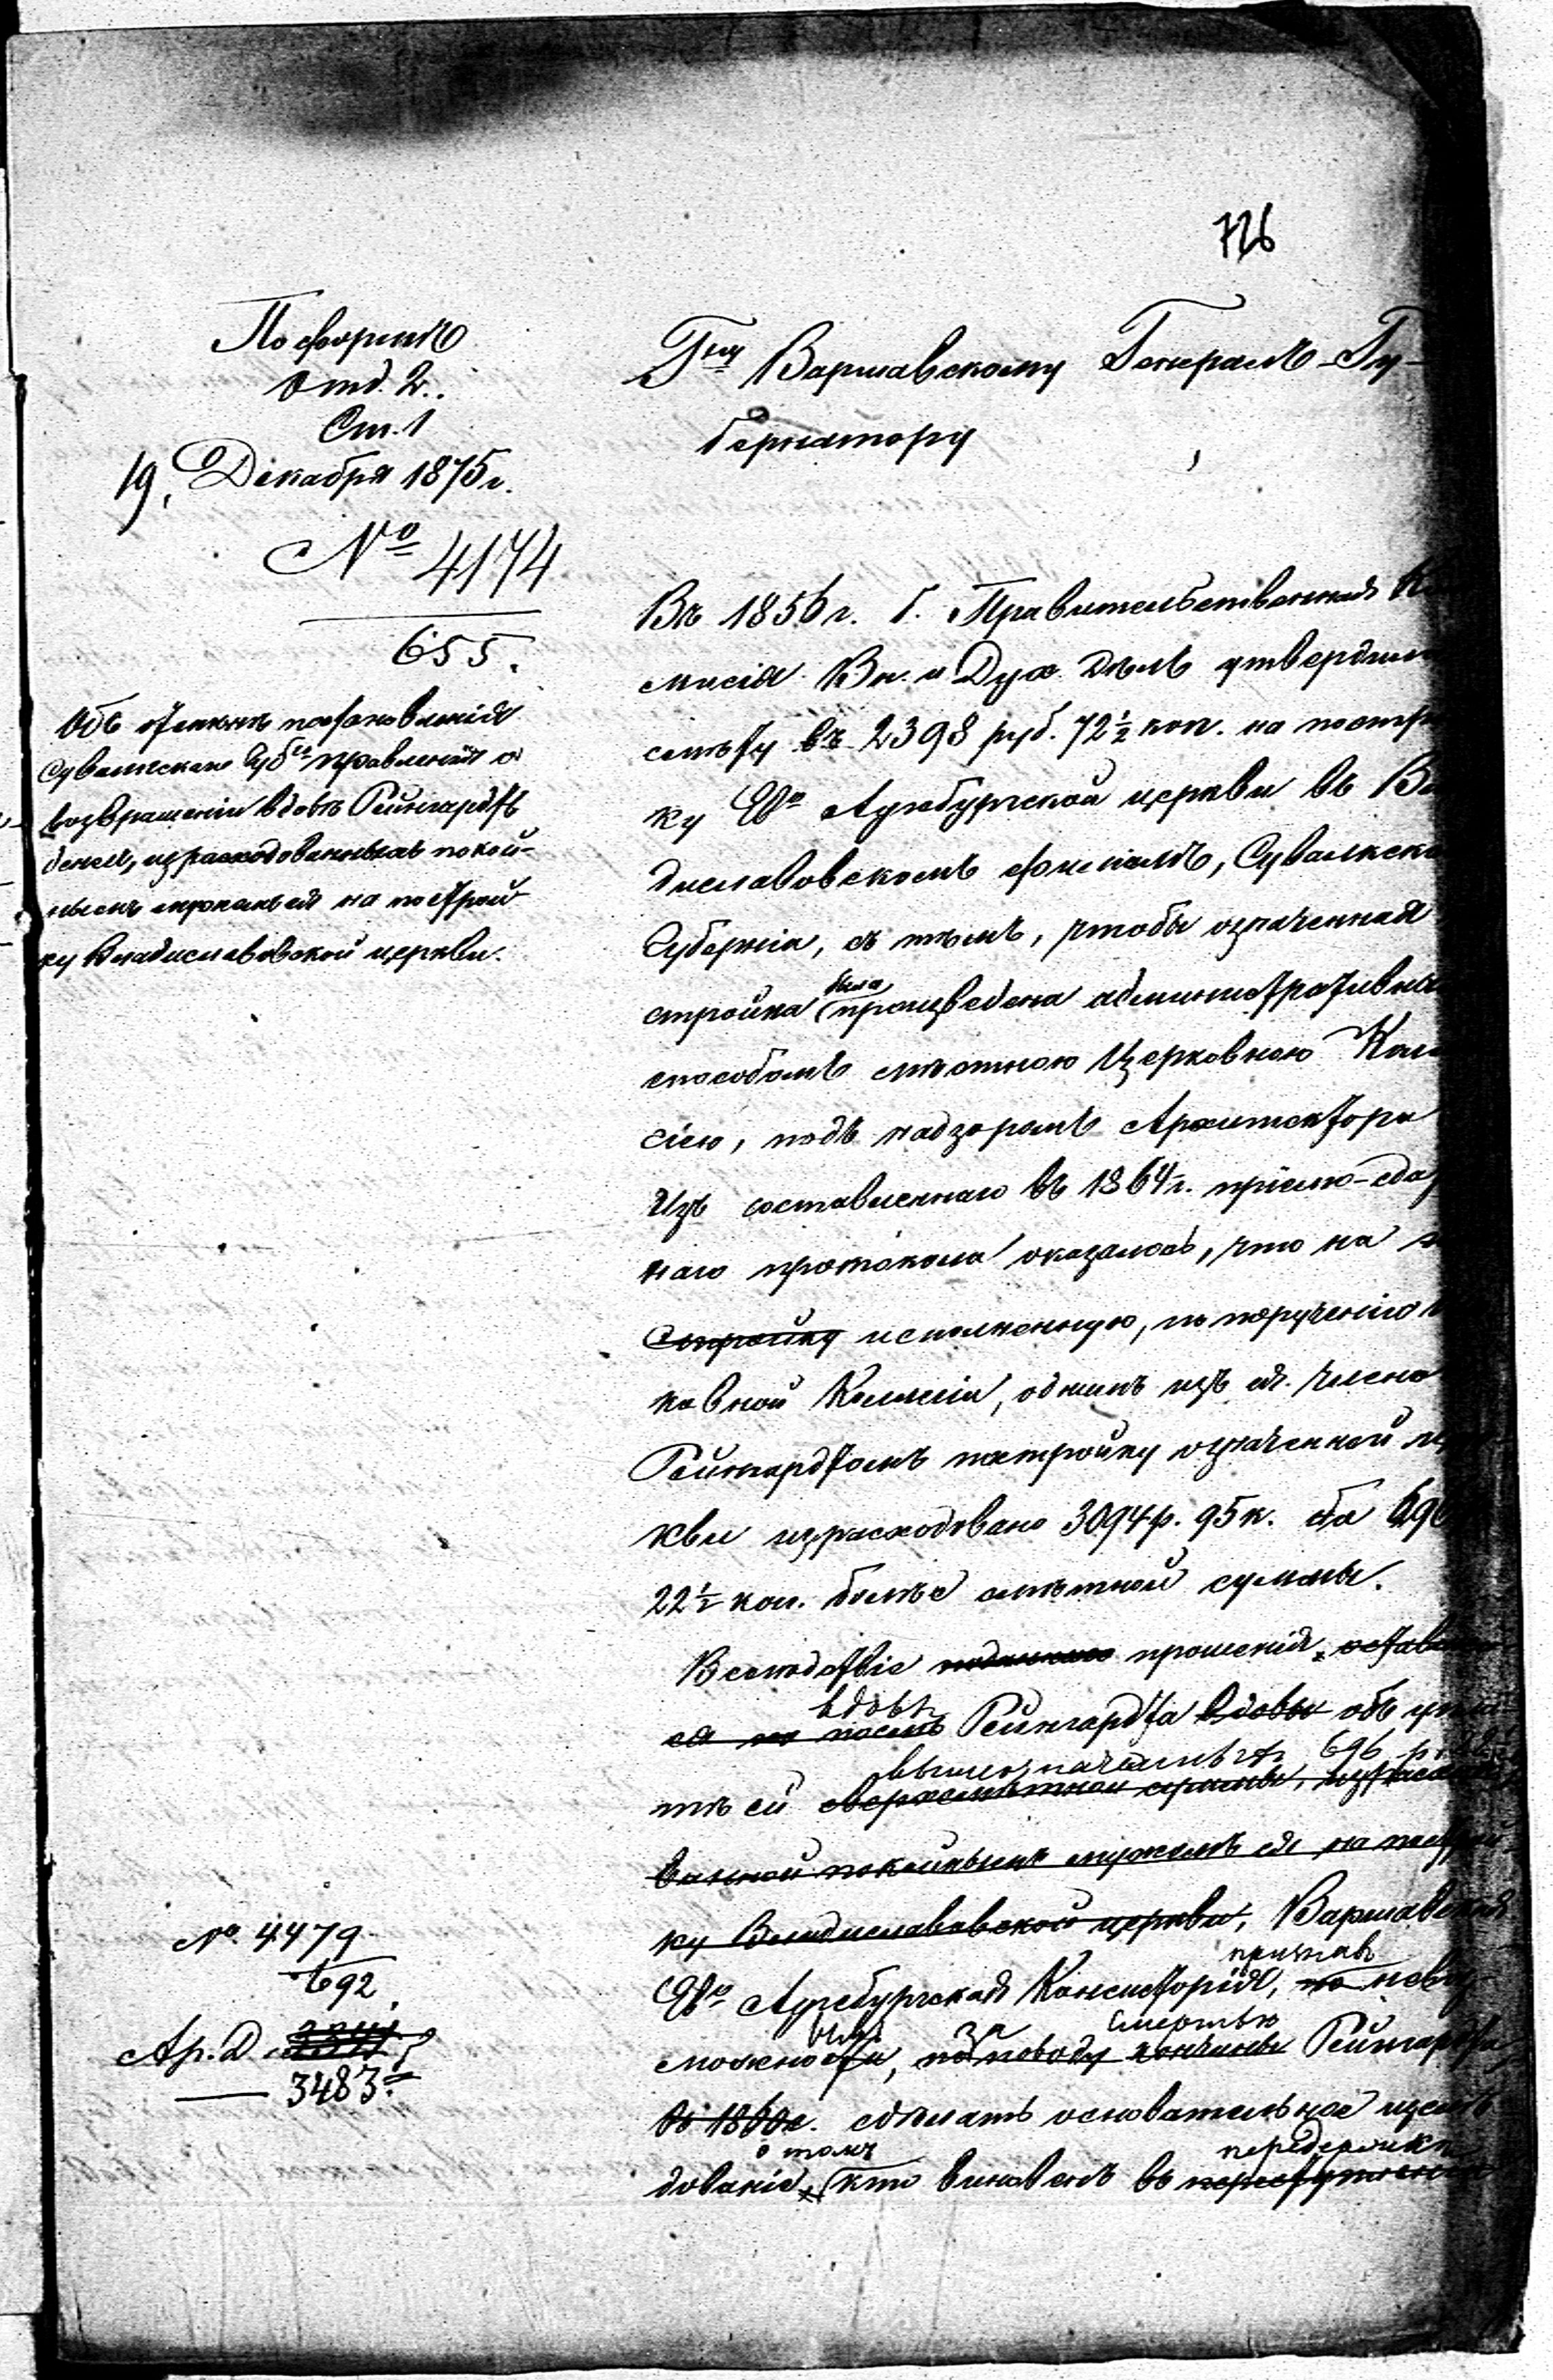 726
По форме
Отд. 2.
Ст. 1
19, Декабря 1875 г.
№ 4174
655.
Объ отмѣнѣ постановленія
Сувалкскаго Губго правленія о
возвращеніи вдовѣ Рейнгардтъ
денегъ, израсходованныхъ покой-
нымъ мужемъ ея на построй
ку Владиславовской церкви.
№ 4479
692
Ар. Д.
3483
Гну Варшавскому Генералъ-Гу-
бернатору
Въ 1856 г. б. Правительственная
мисія Вн. и Дух. Дѣлъ утвердила
смѣту въ 2398 руб. 72½ коп. на
ку Ево Аугсбургской церкви въ
диславовскомъ филіалѣ, Сувалкской
Губерніи, съ тѣмъ, чтобы означенная
стройка была произведена административнымъ
способомъ мѣстною Церковною
сіею, подъ надзоромъ Архитектора
Изъ составленнаго въ 1864 г. пріемо-сдаточ
наго протокола оказалось, что на
стройку исполненную, по порученію
ковной Коллегіи, однимъ изъ ея члено
Рейнгардтомъ постройку означенной
кви израсходовано 3094 р. 95 к. на
22½ коп. болѣе смѣтной суммы.
Вслѣдствіе поданнаго прошенія
вдовы
ся послѣ Рейнгардта вдовы объ
вышеозначенныхъ 696
тѣ ей сверхсмѣтной суммы,
ванной покойнымъ мужемъ ея на
ку Владиславовской церкви, Варшавская
признавъ
Ево Аугсбургская Консисторія, по невоз
за смертью
можности, по поводу кончины Рейнгардта
въ 1860 г. сдѣлать основательное изслѣ
о томъ передержкѣ
дованіе, кто виновенъ въ